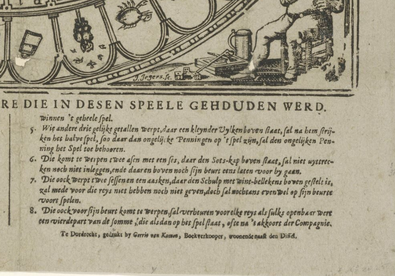 J. Jegers. Sc.
RE DIE IN DESEN SPEELE GEHOUDEN WERD.
winnen 't geheele spel.
5. Wie andre drie gelijke getallen werpt, daar een kleynder Uylken boven staat, sal na hem strij-
ken het halve spel, soo daar dan ongelijke Penningen op 't spel zijn, sal den ongelijken Pen-
ning het Spel toe behooren.
6. Die komt te werpen twee asen met een ses, daar den Sots-kap boven staat, sal niet uyttrec-
ken noch niet inleggen, ende daar en boven noch sijn beurt eens laten voor by gaan.
7. Die oock werpt twee sessen en een aasken, daar den Schulp met wint-bellekens boven gestelt is,
zal mede voor die reys niet hebben noch niet geven, doch sal nochtans evenwel op sijn beurte
voort spelen.
8. Die oock voor sijn beurt komt te werpen, sal verbeuren voor elke reys als sulks openbaar wert
een vierdepart van de somme, die als dan op het spel staat, ofte na 't akkoort der Compagnie.
Te Dordrecht, gedrukt by Gerrit van Boekverkooper, woonende naast den